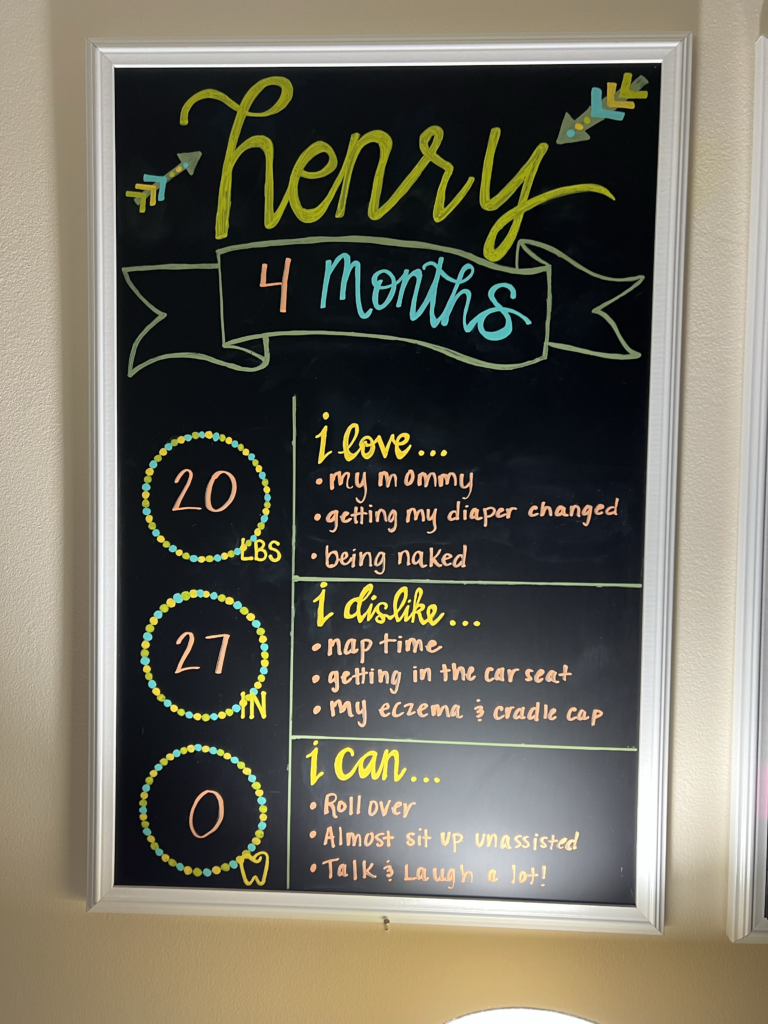 henry
4 Months
20
LBS
i love...
• my mommy
• getting my diaper changed
• being naked
27
IN
i dislike...
• nap time
• getting in the car seat
• my eczema & cradle cap
0
i can...
• Roll over
• Almost sit up unassisted
• Talk & Laugh a lot!